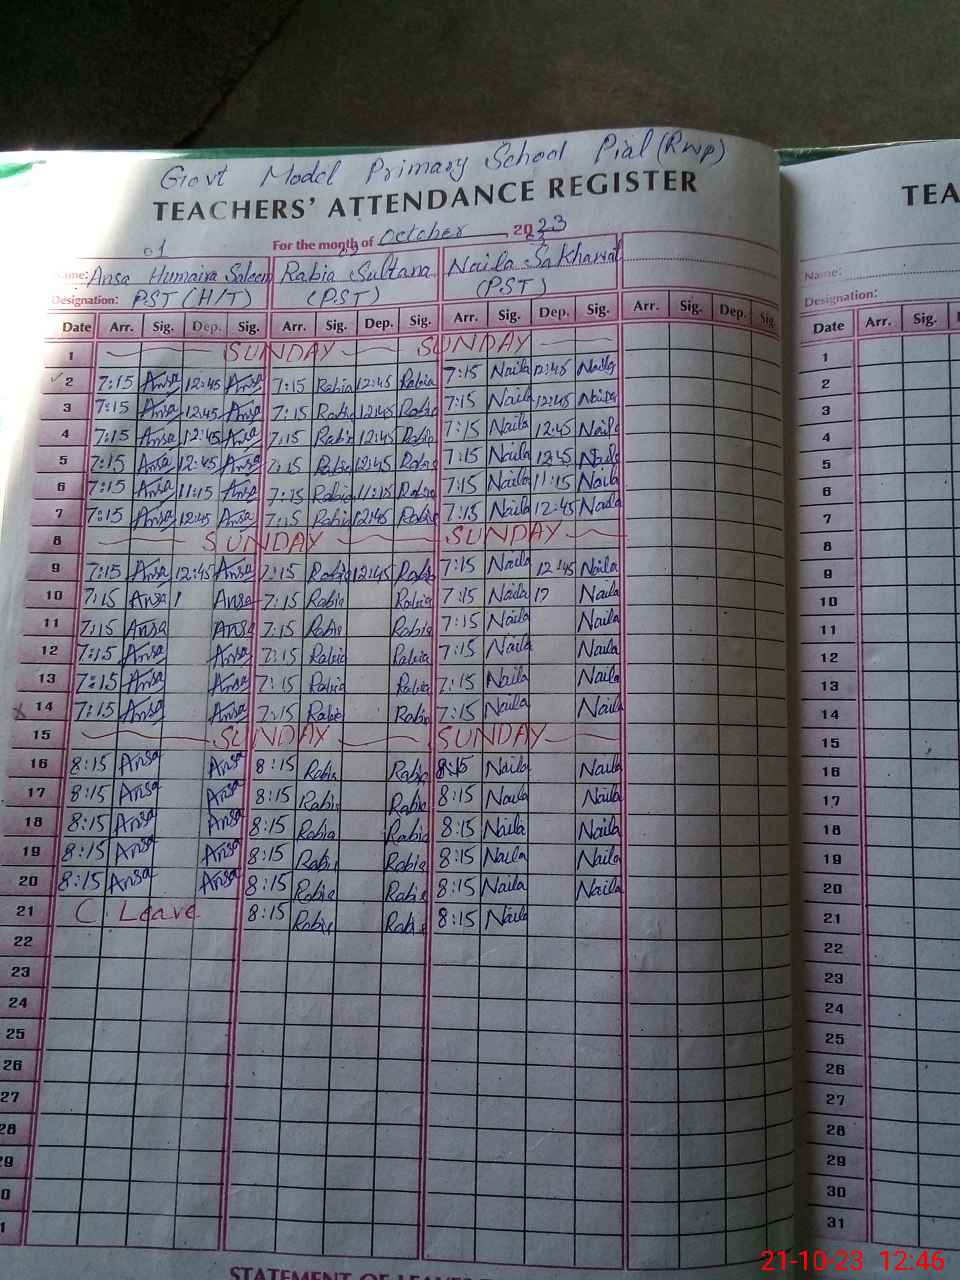 Govt Model Primary School Pial (Rwp)
TEACHERS' ATTENDANCE REGISTER
TEA
For the month of October 2023
01 02 03
Name: Ansa Humaira Saleem Rabia Sultana Naila Sakhawat
Name:
Designation: PST (H/T) (PST) (PST)
Designation:
Date Arr. Sig. Dep. Sig. Arr. Sig. Dep. Sig. Arr. Sig. Dep. Sig. Arr. Sig. Dep. Sig. Date Arr. Sig.
1 SUNDAY SUNDAY 1
2 7:15 Ansa 12:45 Ansa 7:15 Rabia 12:45 Rabia 7:15 Naila 12:45 Naila 2
3 7:15 Ansa 12:45 Ansa 7:15 Rabia 12:45 Rabia 7:15 Naila 12:45 Naila 3
4 7:15 Ansa 12:45 Ansa 7:15 Rabia 12:45 Rabia 7:15 Naila 12:45 Naila 4
5 7:15 Ansa 12:45 Ansa 7:15 Rabia 12:45 Rabia 7:15 Naila 12:45 Naila 5
6 7:15 Ansa 11:15 Ansa 7:15 Rabia 11:15 Rabia 7:15 Naila 11:15 Naila 6
7 7:15 Ansa 12:45 Ansa 7:15 Rabia 12:45 Rabia 7:15 Naila 12:45 Naila 7
8 SUNDAY SUNDAY 8
9 7:15 Ansa 12:45 Ansa 7:15 Rabia 12:45 Rabia 7:15 Naila 12:45 Naila 9
10 7:15 Ansa 1 Ansa 7:15 Rabia Rabia 7:15 Naila Naila 10
11 7:15 Ansa Ansa 7:15 Rabia Rabia 7:15 Naila Naila 11
12 7:15 Ansa Ansa 7:15 Rabia Rabia 7:15 Naila Naila 12
13 7:15 Ansa Ansa 7:15 Rabia Rabia 7:15 Naila Naila 13
14 7:15 Ansa Ansa 7:15 Rabia Rabia 7:15 Naila Naila 14
15 SUNDAY SUNDAY 15
16 8:15 Ansa Ansa 8:15 Rabia Rabia 8:15 Naila Naila 16
17 8:15 Ansa Ansa 8:15 Rabia Rabia 8:15 Naila Naila 17
18 8:15 Ansa Ansa 8:15 Rabia Rabia 8:15 Naila Naila 18
19 8:15 Ansa Ansa 8:15 Rabia Rabia 8:15 Naila Naila 19
20 8:15 Ansa Ansa 8:15 Rabia Rabia 8:15 Naila Naila 20
21 C. Leave 8:15 Rabia Rabia 8:15 Naila 21
22 22
23 23
24 24
25 25
26 26
27 27
28 28
29 29
0 30
1 31
STATEMENT OF LEAVES
21-10-23 12:46